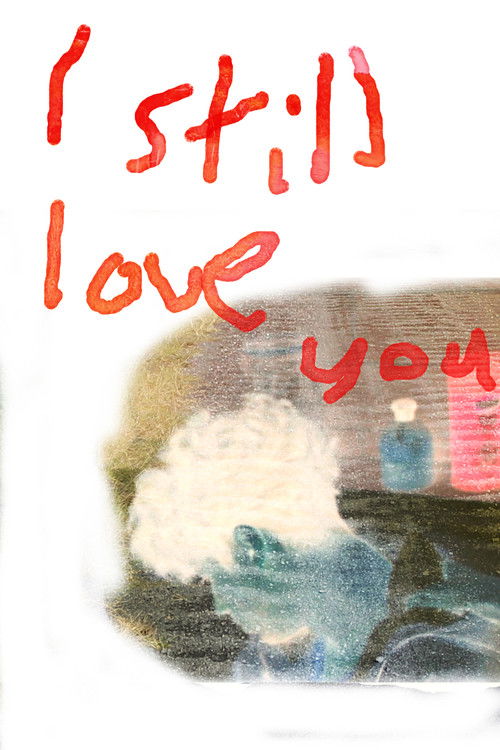 I still
love
you